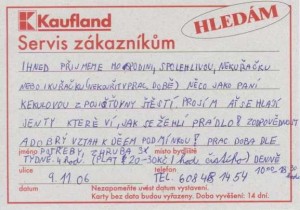 Kaufland
HLEDÁM
Servis zákazníkům
IHNED PŘIJMEME HOSPODINI, SPOLEHLIVOU, NEKUŘAČKU
NEBO I KUŘAČKU (NEKOUŘIT V PRAC. DOBĚ) NĚCO JAKO PANÍ
KEKULOVOU Z POLIKTOVNY ŠTĚSTÍ. PROSÍM AŤ SE HLÁSÍ
JEN TY KTERÉ VÍ, JAK SE ŽEHLÍ PRÁDLO? ZODPOVĚDNOST
A DOBRÝ VZTAH K DĚTEM PODMÍNKOU! PRAC. DOBA DLE
POTŘEBY, ZHRUBA 3X
jméno místo bydliště
TÝDNĚ. 4 hod (PLAT 120-130Kč / hodu čistého) DENNĚ
ulice telefon
9.11.06 TEL. 608 48 1454
datum Nezapomeňte uvést datum vystavení.
Karty bez data budou vyřazeny. Doba vyvěšení: 14 dní.